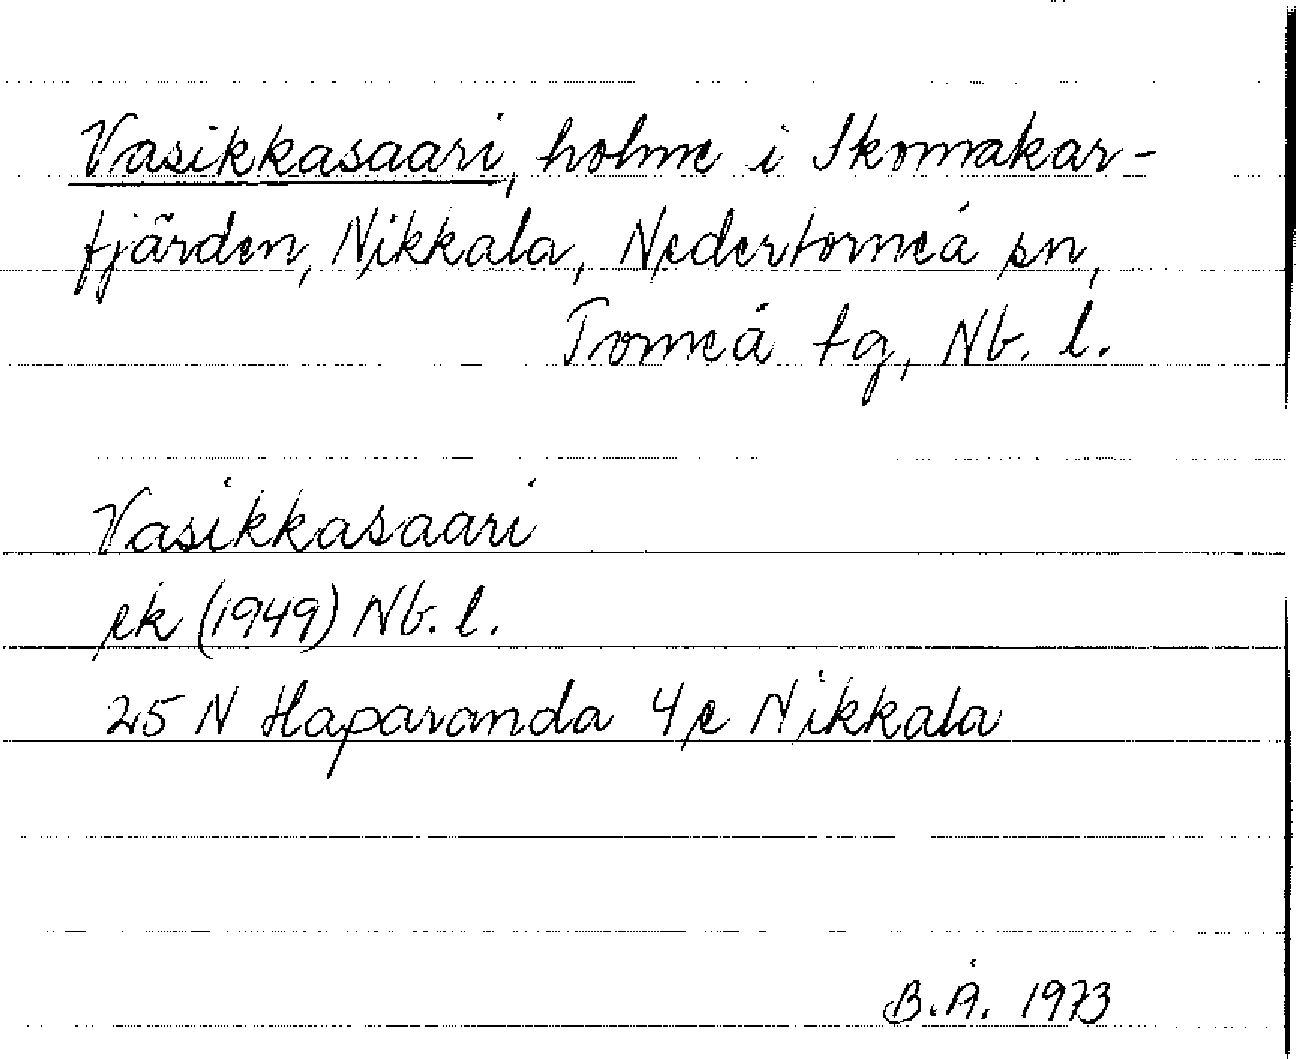 Vasikkasaari, holme i Skomakar-
fjärden, Nikkala, Nedertorneå sn,
Torneå tg, Nb. l.
Vasikkasaari
ek (1949) Nb. l.
25 N Haparanda 4 e Nikkala
B.Å. 1973